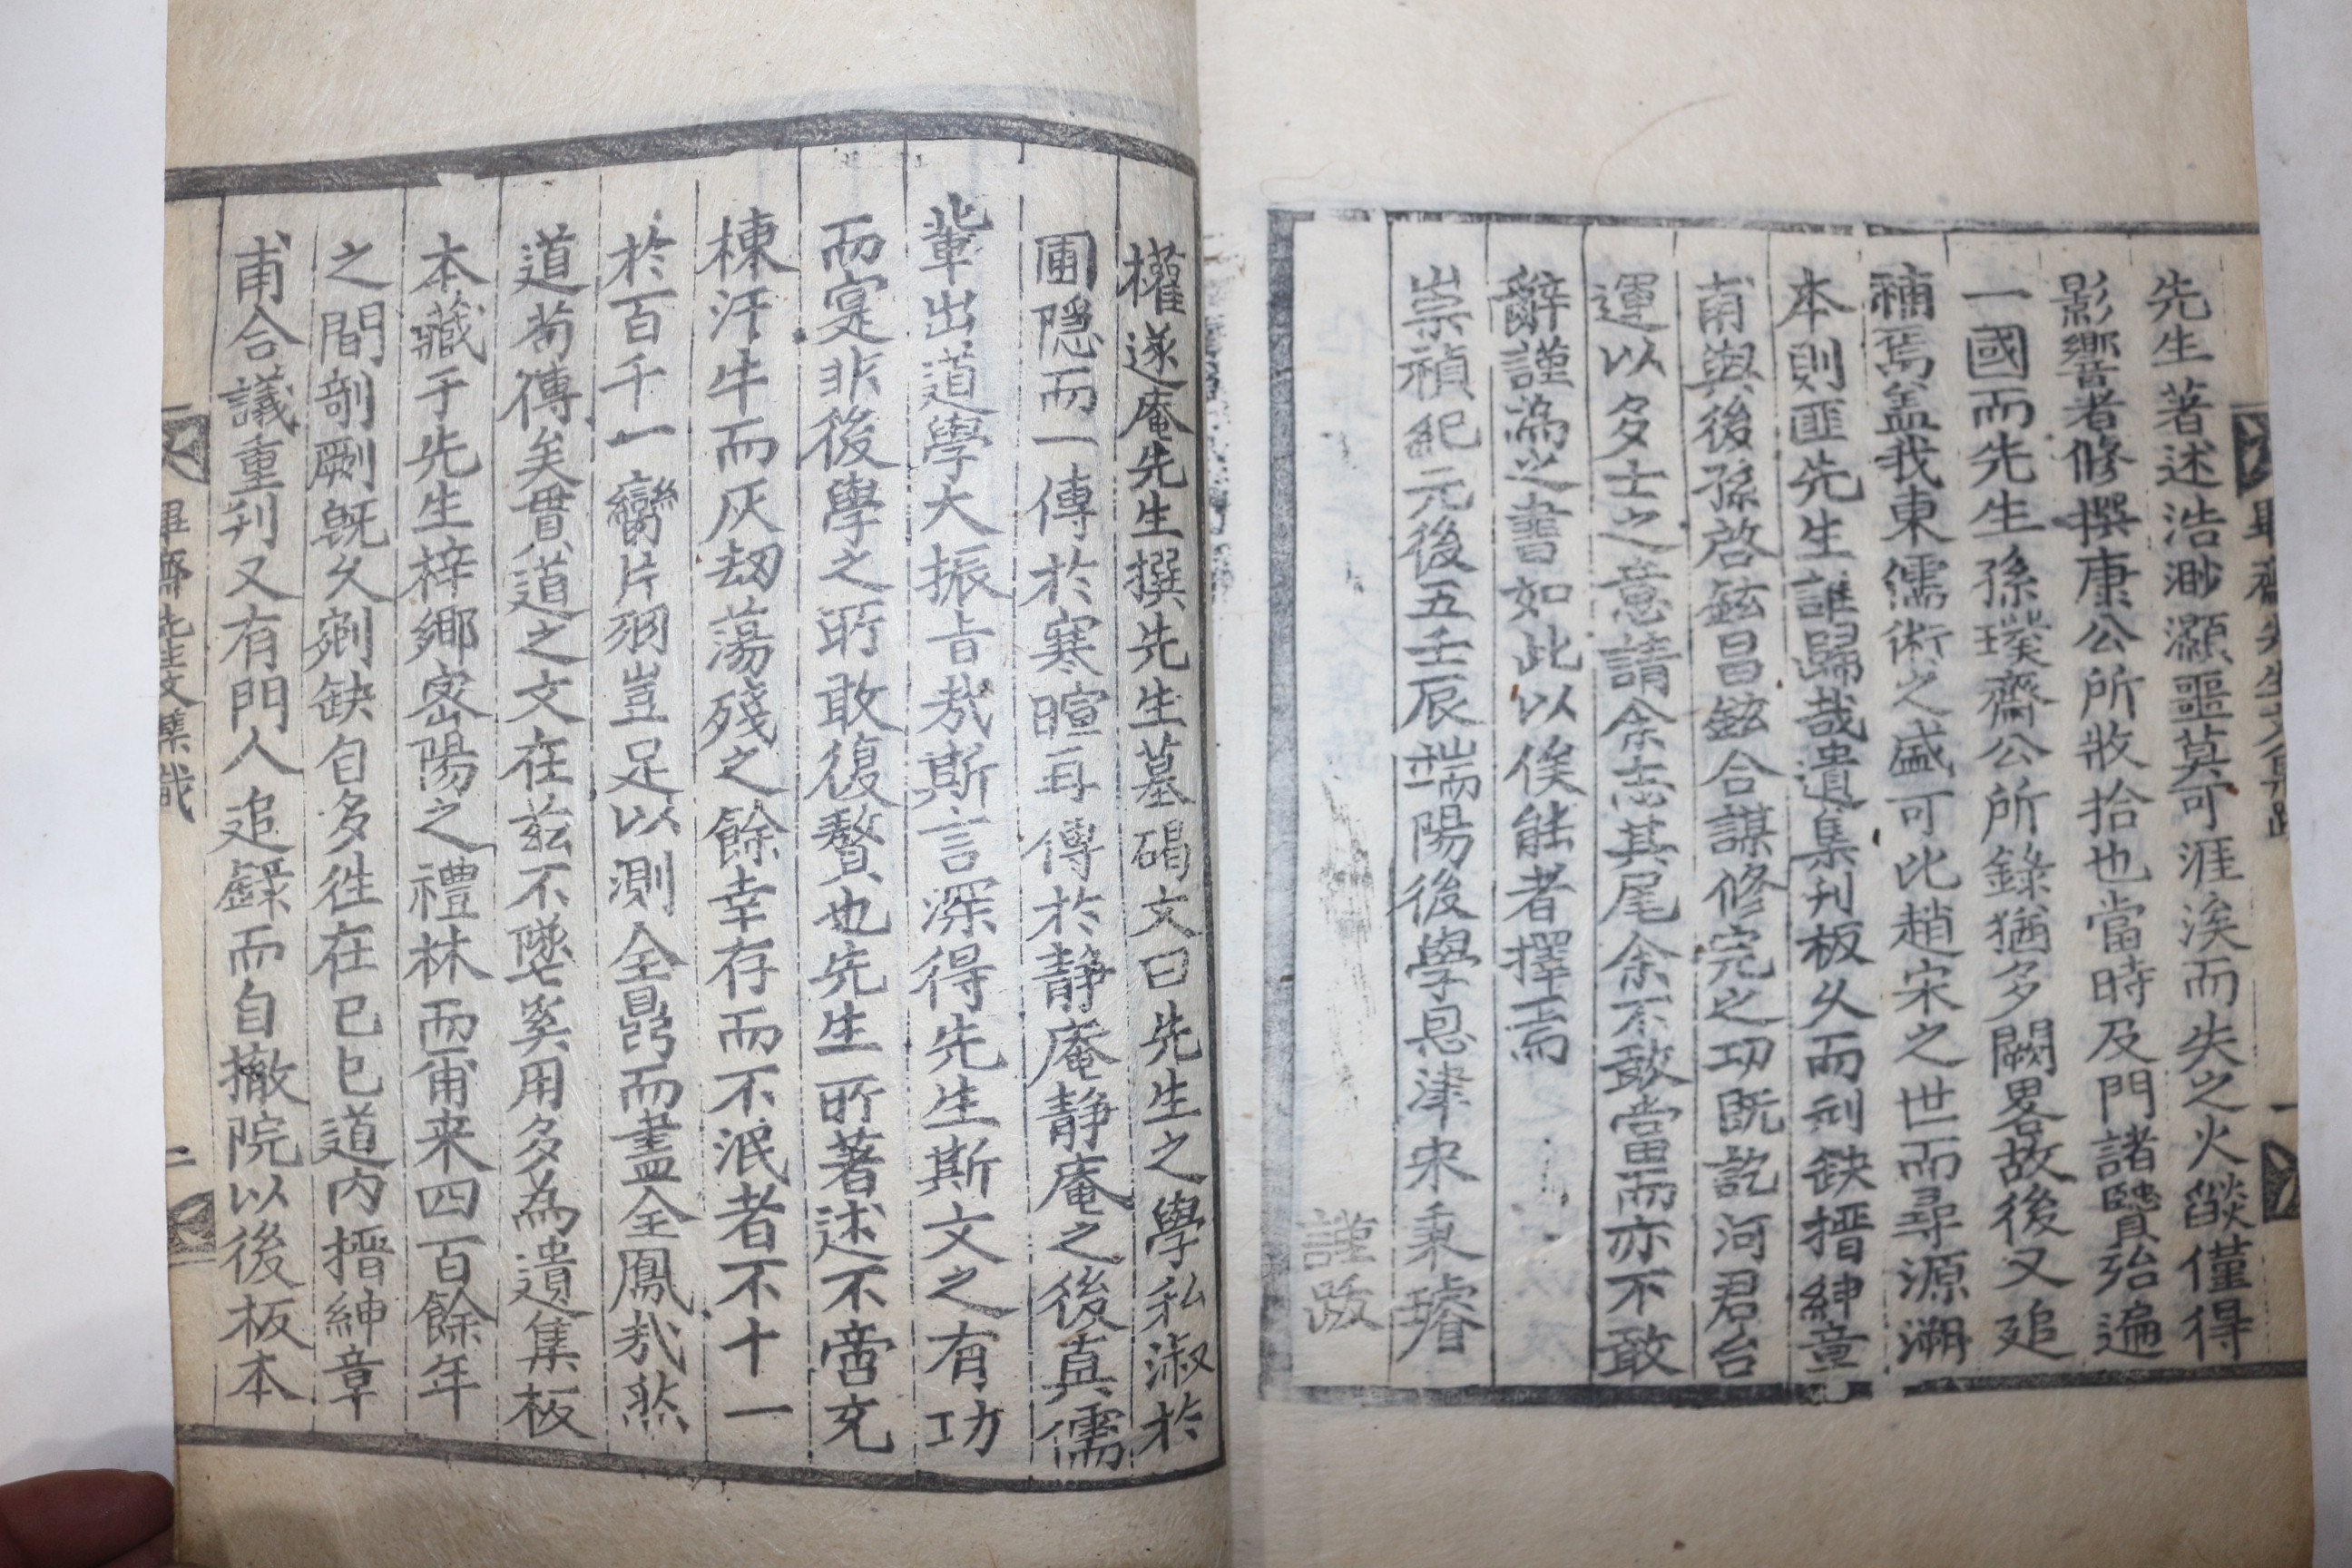 畢齋先生文集跋
一
先生著述浩渺灝噩莫可涯涘而失之火燄僅得
影響者修撰康公所收拾也當時及門諸賢殆遍
一國而先生孫璞齋公所錄猶多闕畧故後又追
補焉盖我東儒術之盛可比趙宋之世而尋源溯
本則匪先生誰歸哉遺集刊板久而刓缺搢紳章
甫與後孫啓鉉昌鉉合謀修完之功旣訖河君台
運以多士之意請余志其尾余不敢當而亦不敢
辭謹爲之書如此以俟能者擇焉
崇禎紀元後五壬辰端陽後學恩津宋秉璿
謹跋
權遂庵先生撰先生墓碣文曰先生之學私淑於
圃隱而一傳於寒暄再傳於靜庵靜庵之後眞儒
軰出道學大振旨哉斯言深得先生斯文之有功
而寔非後學之所敢復贅也先生所著述不啻充
棟汗牛而灰刼蕩殘之餘幸存而不泯者不十一
於百千一臠片羽豈足以測全鼎而盡全鳳哉然
道苟傳矣貫道之文在玆不墜奚用多爲遺集板
本藏于先生梓鄉密陽之禮林而甭来四百餘年
之間剞劂旣久剜缺自多徃在己巳道内搢紳章
甫合議重刋又有門人追錄而自撤院以後板本
畢齋先生文集識
二